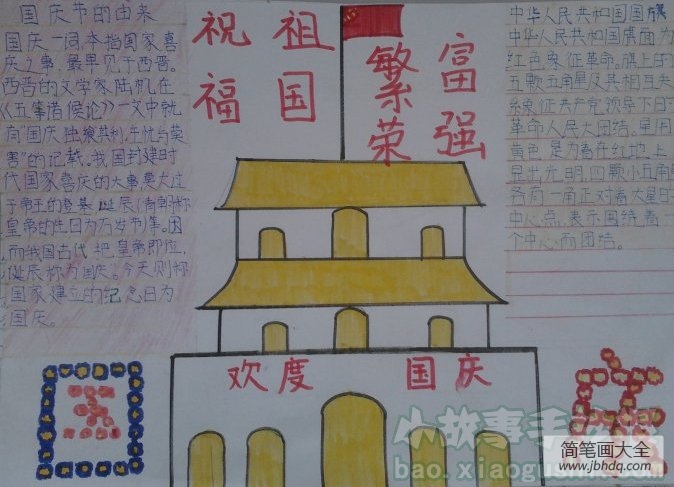 国庆节的由来
国庆一词,本指国家喜
庆之事,最早见于西晋。
西晋的文学家陆机在
《五等诸侯论》一文中就
有"国庆独飨其利,主忧莫与其
害"的记载、我国封建时
代国家喜庆的大事莫大过
于帝王的登基、诞辰(清朝称
皇帝的生日为万岁节)等。因
而我国古代把皇帝即位、
诞辰称为国庆。今天则称
国家建立的纪念日为
国庆。
祝 祖
福 国
繁 富
荣 强
欢度 国庆
中华人民共和国国旗
中华人民共和国旗面为
红色象征革命。旗上的
五颗五角星及其相互关
系象征共产党领导下的
革命人民大团结。星用
黄色是为着在红地上
显出光明,四颗小五角星
各有一角正对着大星的
中心点,表示围绕着一
个中心而团结。
小故事手抄报
bao.xiaogushi
简笔画大全
www.jbhdq.com